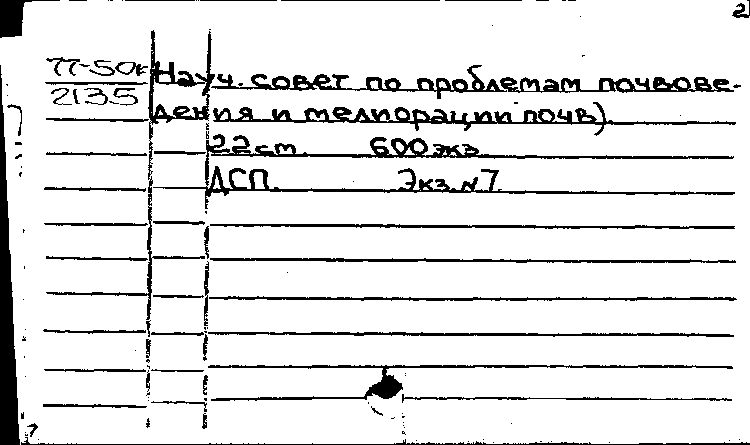 2
77-50к Науч. совет по проблемам почвове-
2135 дения и мелиорации почв).
22 ст. 600 экз.
ДСП. Экз. № 7